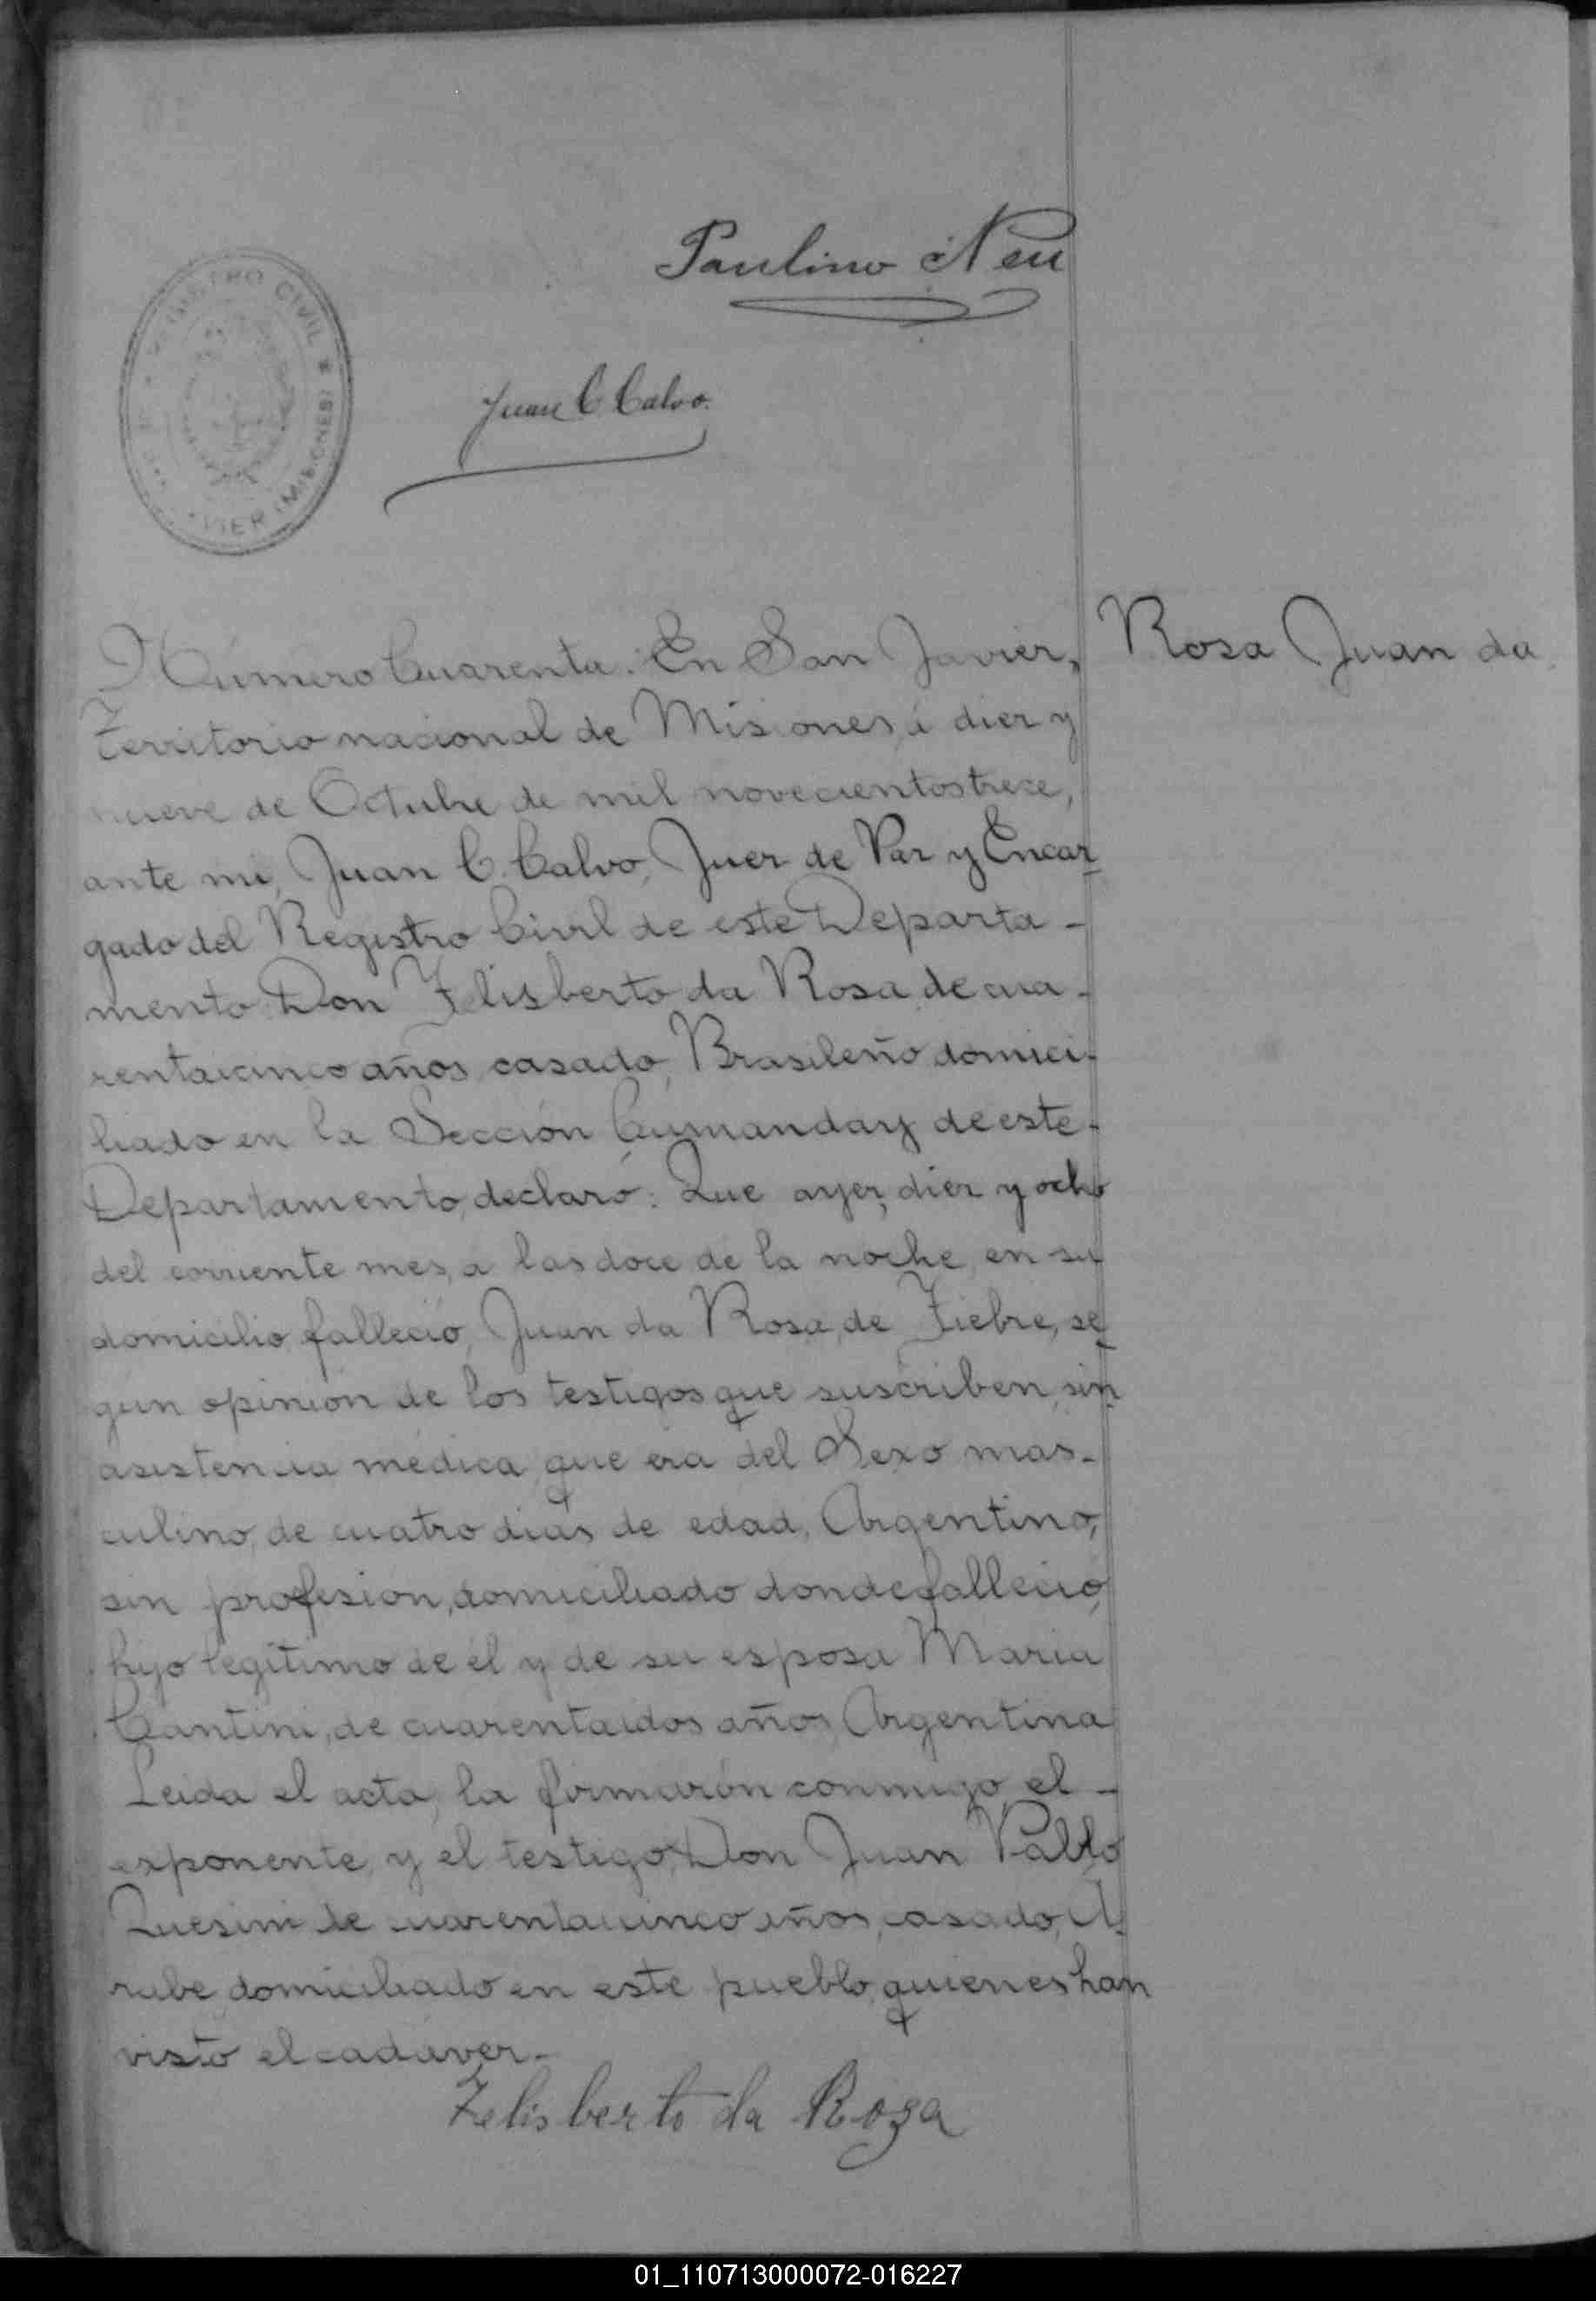 Paulino Neu
REGISTRO CIVIL
VIER (MISIONES)
Juan C. Calvo.
Rosa Juan da
Número Cuarenta: En San Javier,
Territorio nacional de Misiones, á diez y
nueve de Octubre de mil novecientos trece,
ante mi, Juan C. Calvo, Juez de Paz y Encar-
gado del Registro Civil de este Departa-
mento Don Felisberto da Rosa, de cua-
rentaicinco años, casado, Brasileño domici-
liado en la Sección Cumanday de este-
Departamento, declaró: Que ayer, diez y ocho
del corriente mes, a las doce de la noche, en su
domicilio, falleció, Juan da Rosa, de Fiebre, se-
gún opinión de los testigos que suscriben, sin
asistencia médica, que era del Sexo mas-
culino, de cuatro dias de edad, Argentino,
sin profesion, domiciliado donde falleció
hijo legítimo de él y de su esposa Maria
Cantini, de cuarentaidos años, Argentina
Leida el acta, la firmarón conmigo el -
exponente, y el testigo, Don Juan Pablo
de cuarentaicinco años, casado, A-
rabe, domiciliado en este pueblo, quienes han
visto el cadáver.-
Felisberto da Roza
01_110713000072-016227